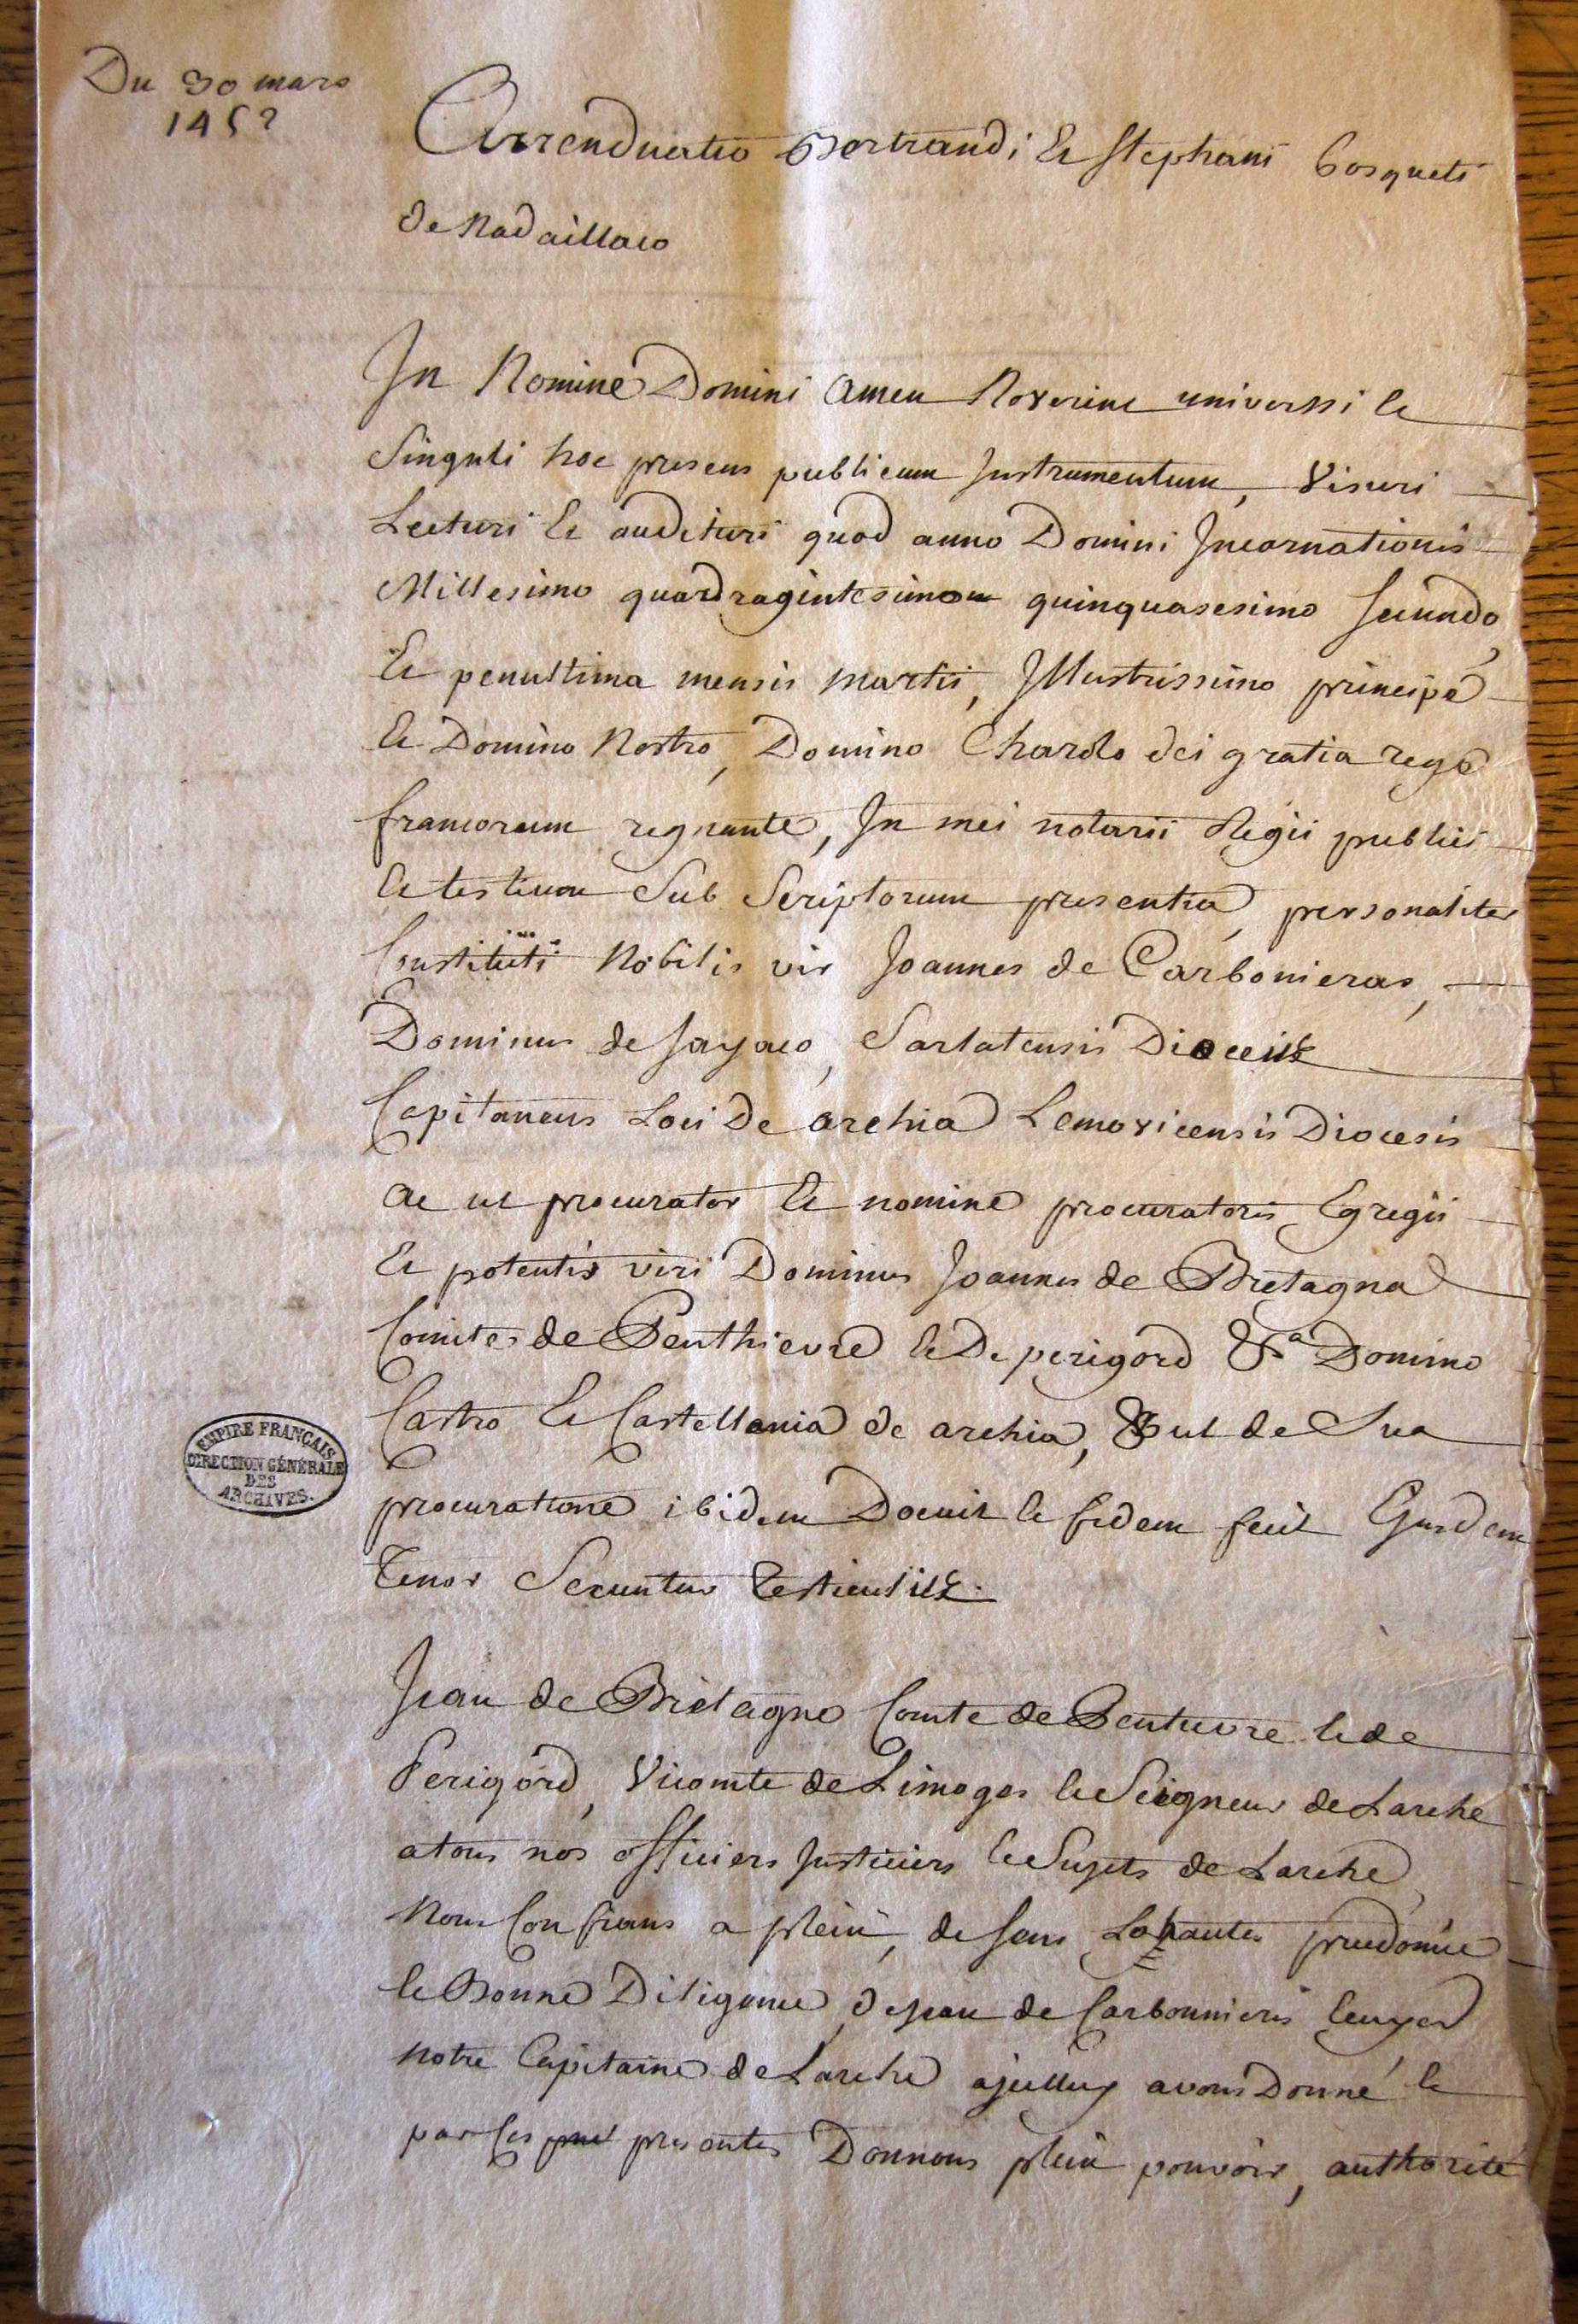 Du 30 mars
1452
Arrenduatio Bertrandi Et Stephani Bosqueti
de Nadaillaco
In Nomine Domini Amen Noverint universsi et
Singuli hoc presens publicum Instrumentum, Visuri
Lecturi Et audituri quod anno Domini Incarnationis
Millesimo quardragintesimo quinquasesimo secundo,
Et penultima mensis martii, Illustrissimo principe
Et Domino Nostro, Domino Charolo dei gratia rege
francorum regnante, In mei notarii Regii publici
Et testium Sub Scriptorum presentia, personaliter
Constituti Nobilis vir Joannes de Carbonieras,
Dominus de Jayaco, Sarlatensis Diocesis
Capitaneus Loci De archia Lemovicensis Diocesis
ac ut procurator Et nomine procuratoris Egregii
Et potentis viri Dominus Joannes de Bretagna
Comites de Penthievre et De perigord &a Domino
Castro Et Castellania de archia, & ut de Sua
procuratione ibidem Docuit et fidem fecit Ejusdem
Tenor Secuntur
Jean de Bretagne Comte de Pentievre et de
Perigord, Vicomte de Limoges et Seigneur de Larche
a tous nos officiers Justiciers et Sujets de Larche,
Nous Confians a plein, de sens Lohautes prudomie
et Bonne Diligence, de jean de Carbonnieris Ecuyer
notre Capitaine de Larche avons Donné et
par Ces presentes Donnons plein pouvoir, authorité
EMPIRE FRANÇAIS
DIRECTION GÉNÉRALE
DES
ARCHIVES.